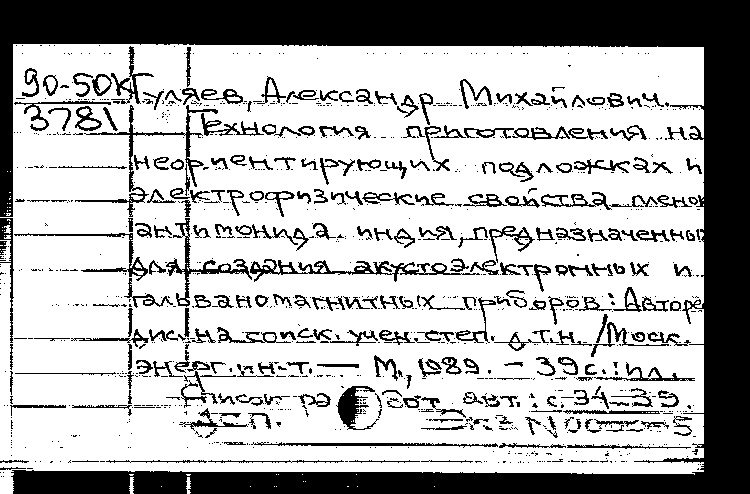 90-50К Гуляев, Александр Михайлович.
3781 Технология приготовления на
неориентирующих подложках и
электрофизические свойства пленок
антимонида индия, предназначенных
для создания акустоэлектронных и
гальваномагнитных приборов: Авторе
дис. на соиск. учен. степ. д.т.н. / Моск.
энерг. ин-т. — М., 1989. - 39 с.: ил.
Список ра от авт.: с. 34-39.
ДСП. Экз N